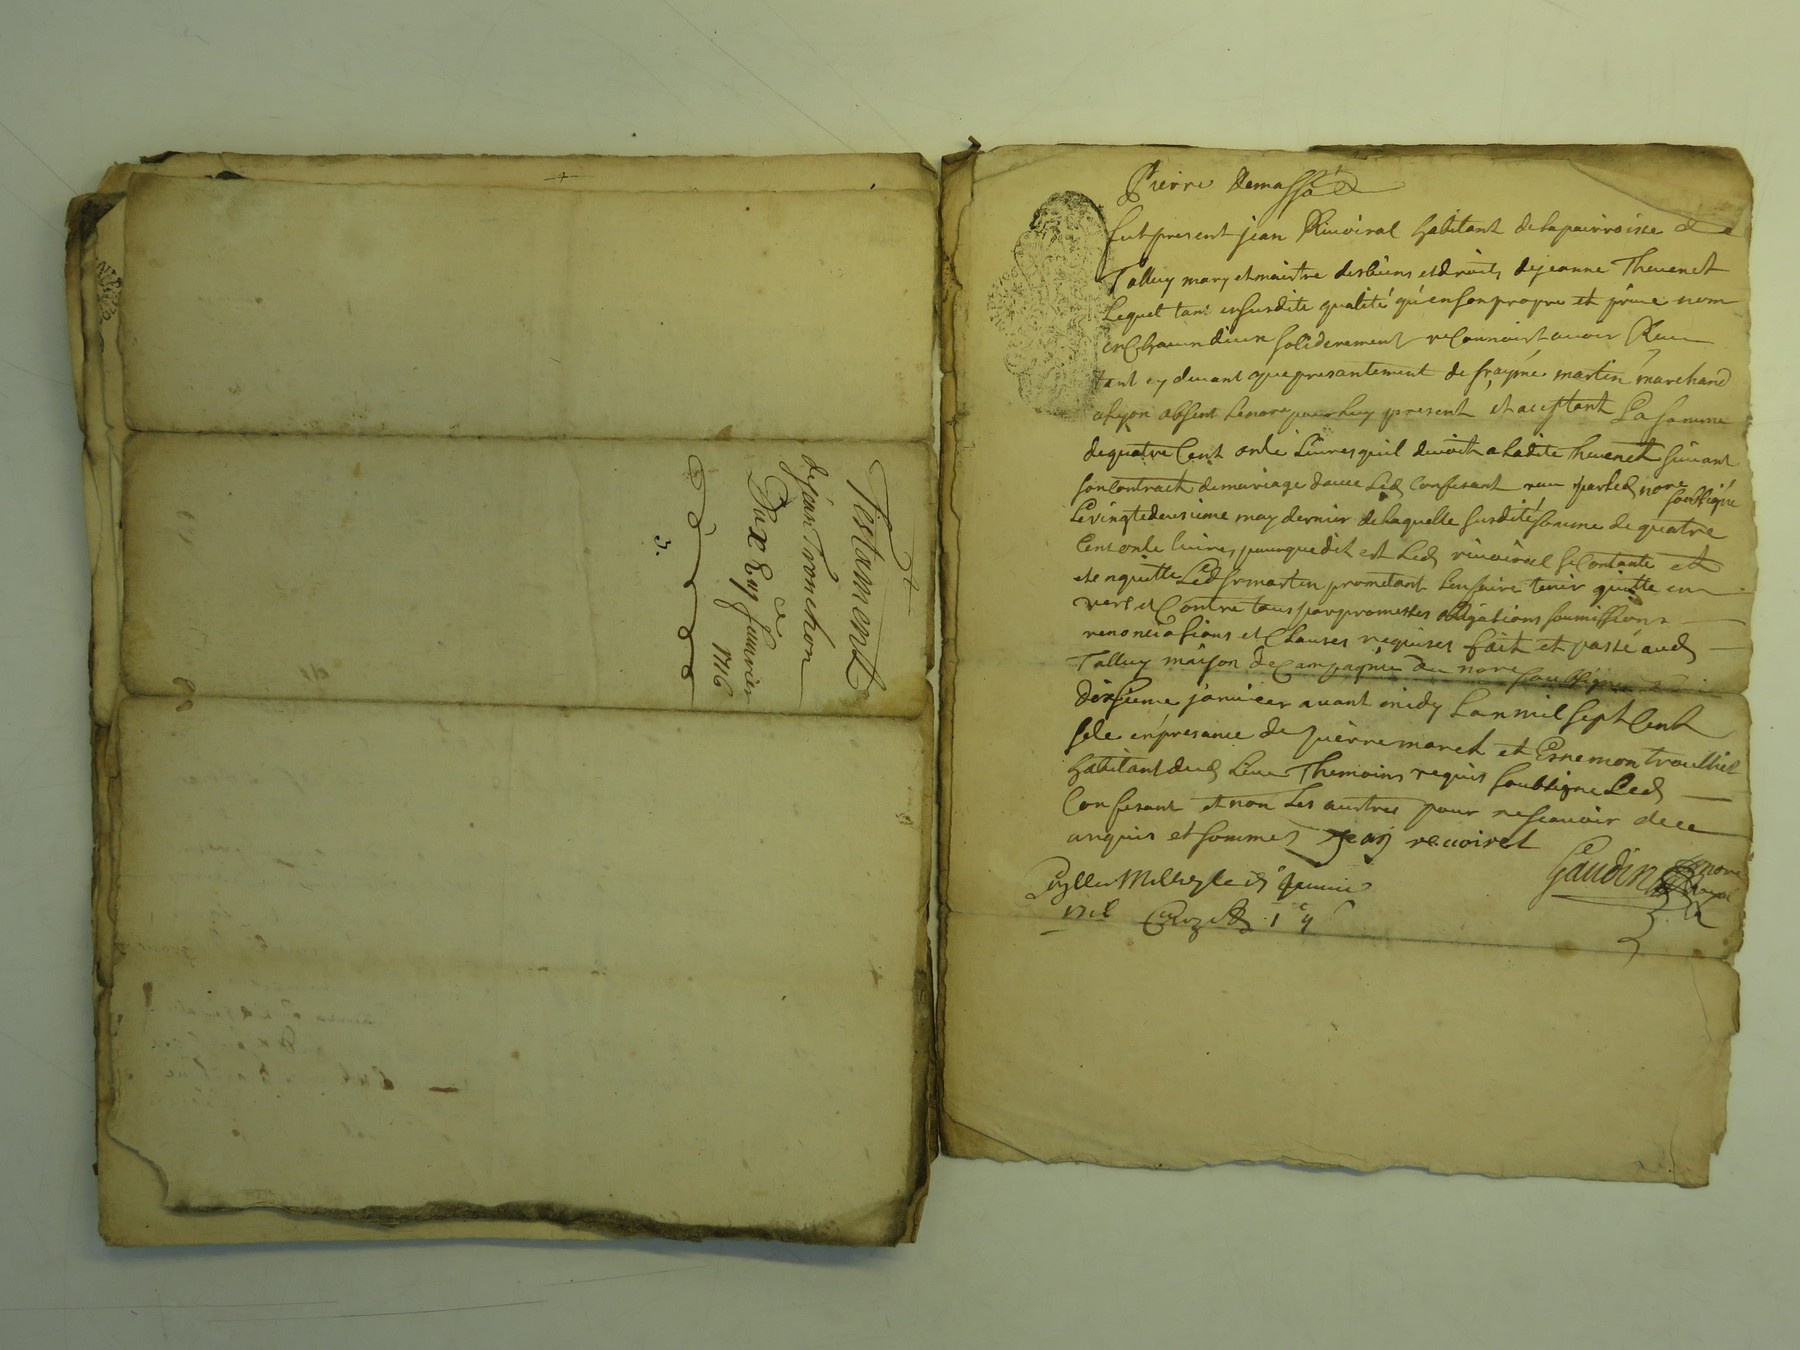 Testament
de jean Tronchon
Du xxviij feuvrier
1716
3.
Pierre demassod
fut present jean Riuoiral habitant de la pairroisse de
Talluy mary et maistre des biens et droits de jeanne Theuenet
Lequel tant en susdite qualité qu'en son propre et priué nom
en Chacun diceux solidérement reConnoist auoir Receu
tant cy deuant que presantement de martin marchand
a Lyon absent Lenore pour Luy present et aceptant La somme
de quatre Cent onse Liures quil deuoit a Ladite Theuenet suiuant
son Contract de mariage dauec Led Confesant receu par Led nore soussigné
Le vingtedeusieme may dernier de laquelle susdite somme de quatre
Cent onse liures Led riuoiral se Contante et
et en quitte Led sr martin prometant Len faire tenir quitte en
vers et Contre tous par promesses obligations soumissions
renonciasions et Clauses requises fait et passé aud
Talluy maison de Campagnie du nore soussigné
dixsieme januier auant midy Lan mil sept Cent
sese en presance de pierre maret et Esnemon troulliet
habitant dud Lieu Themoins requis soubsigné Led
Confesant et non Les austres pour ne scauoir de ce
enquis et sommes Jean reuoirel
Gaudin nore Royal
januier